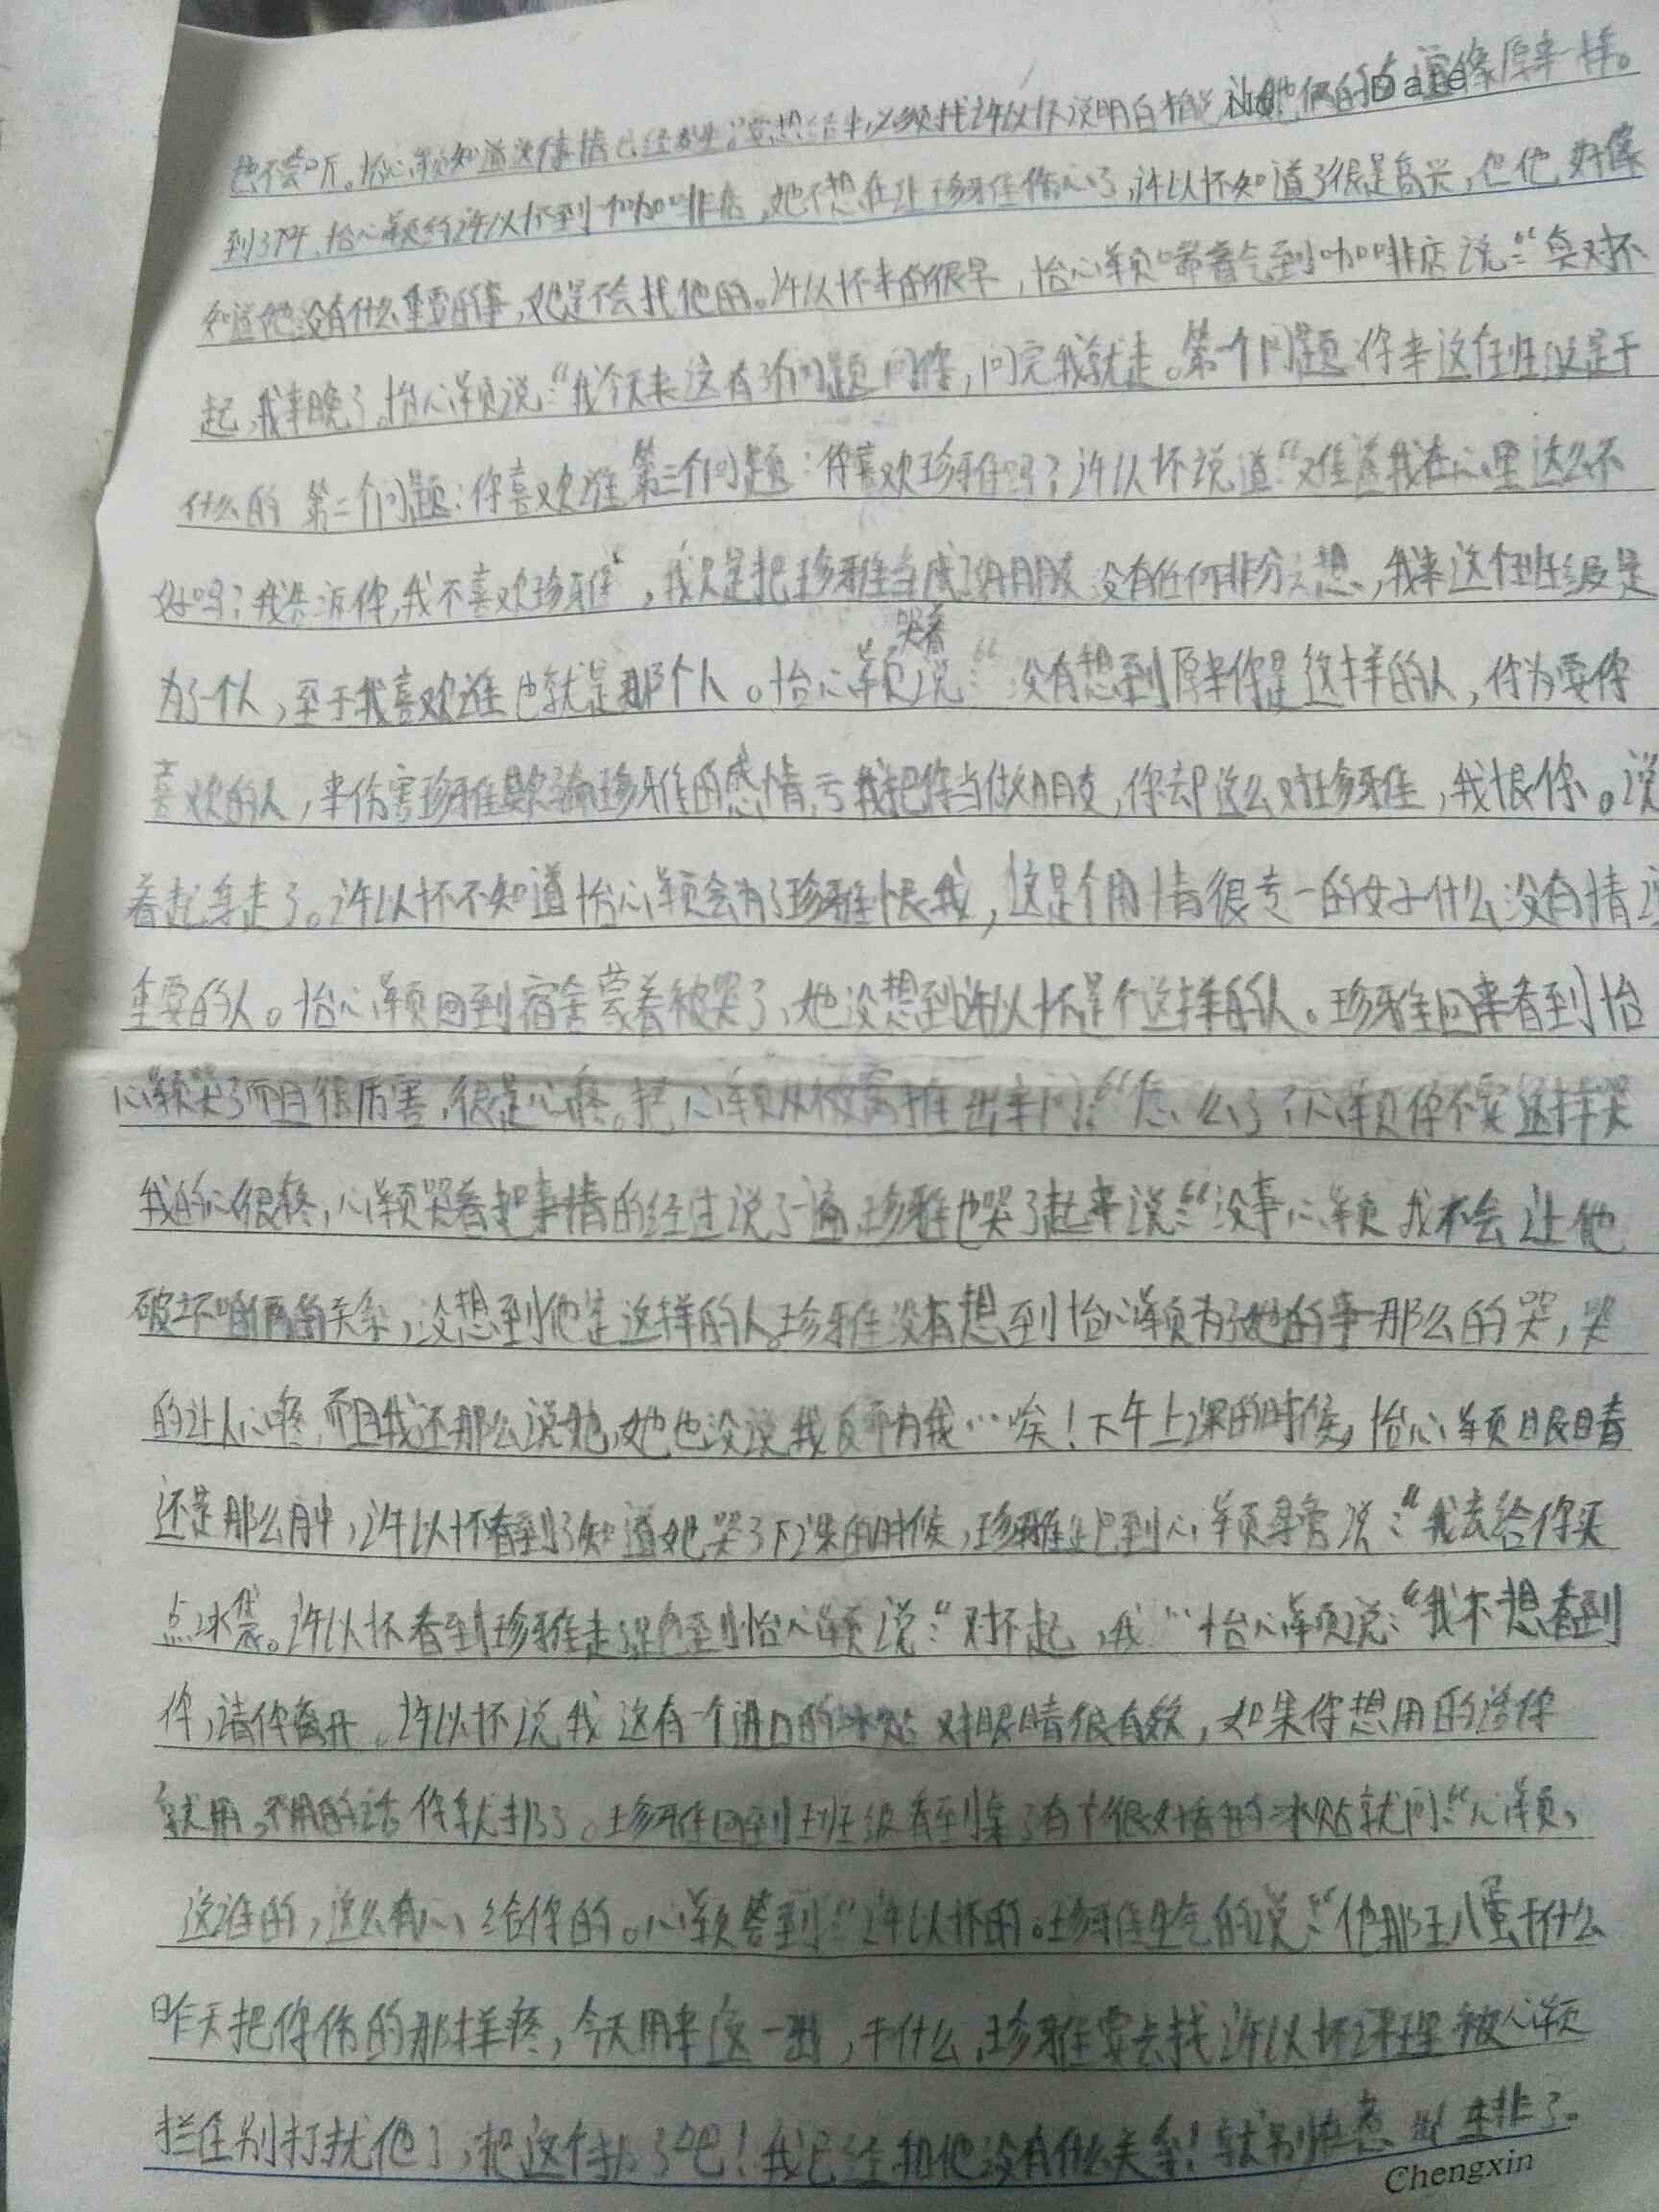 No. Date
她不会听。怡心颖知道这件事情已经发生了要想结束,必须找许以怀说明白 让她俩的 像原来一样。
到了下午,怡心颖约许以怀到咖啡店,她不想在让珍雅伤心了,许以怀知道了很是高兴,但他好像
知道她没有什么重要的事,她是不会找他的。许以怀来的很早,怡心颖喘着气到咖啡店说:“真对不
起,我来晚了。怡心颖说:“我今天来这有3个问题问你,问完我就走。第一个问题:你来这住班级是干
什么的 第二个问题:你喜欢谁 第三个问题:你喜欢珍雅吗?许以怀说道“难道我在心里这么不
好吗?我告诉你,我不喜欢珍雅”,我只是把珍雅当成了好朋友 没有任何非分之想,我来这个班级是
为了一个人,至于我喜欢谁也就是那个人。怡心颖哭着说:“没有想到原来你是这样的人,你为要你
喜欢的人,来伤害珍雅欺骗珍雅的感情,亏我把你当做朋友,你却这么对珍雅,我恨你。说
着起身走了。许以怀不知道怡心颖会为了珍雅恨我,这是个用情很专一的女子什么没有情谊
重要的人。怡心颖回到宿舍蒙着被哭了,她没想到许以怀是个这样的人。珍雅回来看到怡
心颖哭了而且很厉害,很是心疼。把心颖从被窝推出来问:“怎么了?心颖你不要这样哭
我的心很疼,心颖哭着把事情的经过说了一遍,珍雅也哭了起来说:“没事心颖 我不会让他
破坏咱俩的关系,没想到他是这样的人。珍雅没有想到怡心颖为了她的事那么的哭,哭
的让人心疼,而且我还那么说她,她也没说我反而为我…唉!下午上课的时候,怡心颖眼睛
还是那么肿,许以怀看到了知道她哭了下课的时候,珍雅跑到心颖身旁说:“我去给你买
点冰袋。许以怀看到珍雅走了跑到怡心颖说:“对不起,我…怡心颖说:“我不想看到
你,请你离开。许以怀说我这有一个进口的冰贴 对眼睛很有效,如果你想用的话你
就用,不用的话你就扔了。珍雅回到班级看到桌子有个很好看的冰贴就问:“心颖,
这谁的,这么有心给你的。心颖答到“许以怀的。珍雅生气的说:“他那王八蛋干什么
昨天把你伤的那样疼,今天用来这一出,干什么,珍雅要去找许以怀评理被心颖
拦住别打扰他了,把这个扔了吧!我已经和他没有什么关系!就别惹出是非了。
Chengxin